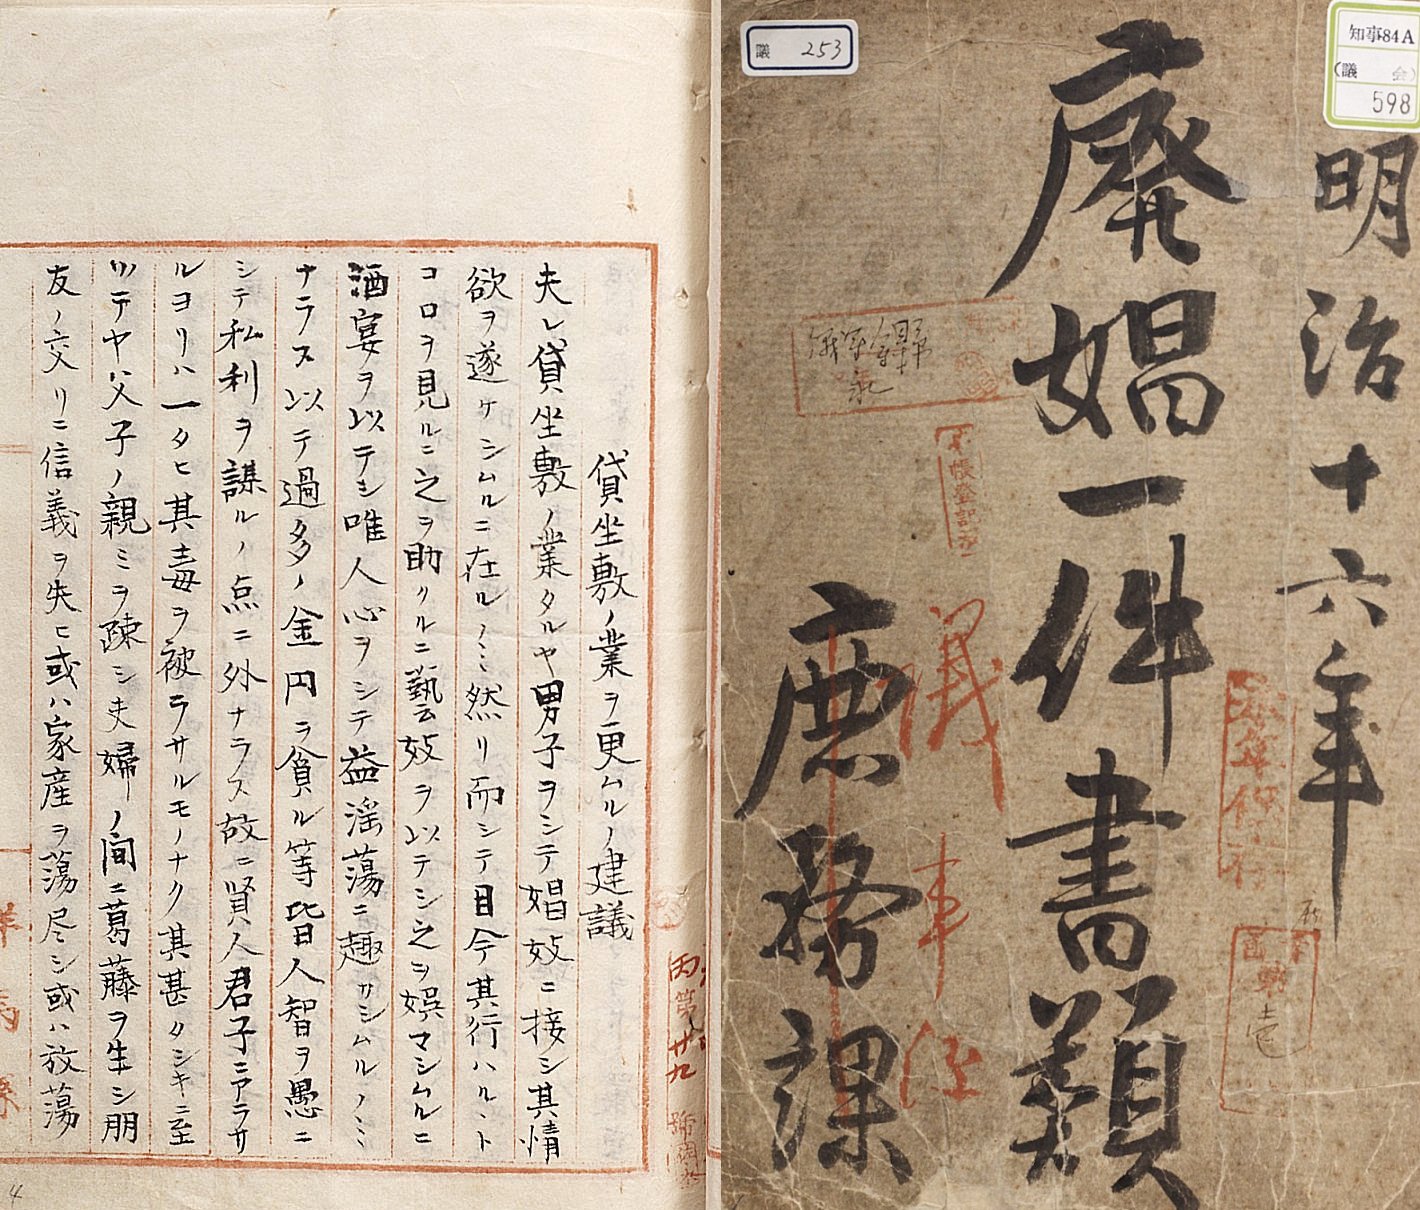 議 253
知事84A
(議 会)
598
明治十六年
廃娼一件書類
庶務課
議事係
貸坐敷ノ業ヲ更ムルノ建議
夫レ貸坐敷ノ業タルヤ男子ヲシテ娼妓ニ接シ其情
欲ヲ遂ケシムルニ在ルノミ然リ而シテ目今其行ハルヽト
コロヲ見ルニ之ヲ助クルニ藝妓ヲ以テシ之ヲ娯マシムルニ
酒宴ヲ以テシ唯人心ヲシテ益淫蕩ニ趣カシムルノミ
ナラス以テ過多ノ金円ヲ貪ル等皆人智ヲ愚ニ
シテ私利ヲ謀ルノ点ニ外ナラス故ニ賢人君子ニアラサ
ルヨリハ一タヒ其毒ヲ被ラサルモノナク其甚タシキニ至
ツテヤ父子ノ親ミヲ疎シ夫婦ノ間ニ葛藤ヲ生シ朋
友ノ交リニ信義ヲ失ヒ或ハ家産ヲ蕩尽シ或ハ放蕩
丙第廿九号
4